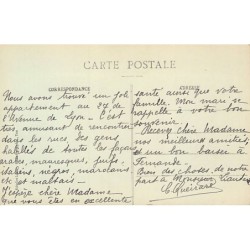 CARTE POSTALE
CORRESPONDANCE
Nous avons trouvé un joli
appartement au 27 de
l'Avenue de Lyon. C'est
très amusant de rencontrer
dans les rues les gens
habillés de toutes les façons
arabes, mauresques, juifs,
italiens, nègres, marocains
etc et maltais.
J'espère chère Madame
que vous êtes en excellente
ADRESSE
santé ainsi que votre
famille. Mon mari se
rappelle à votre bon
souvenir.
Recevez chère Madame
nos meilleures amitiés
et un bon baiser à
Fernande.
Bien des choses de notre
part à Monsieur